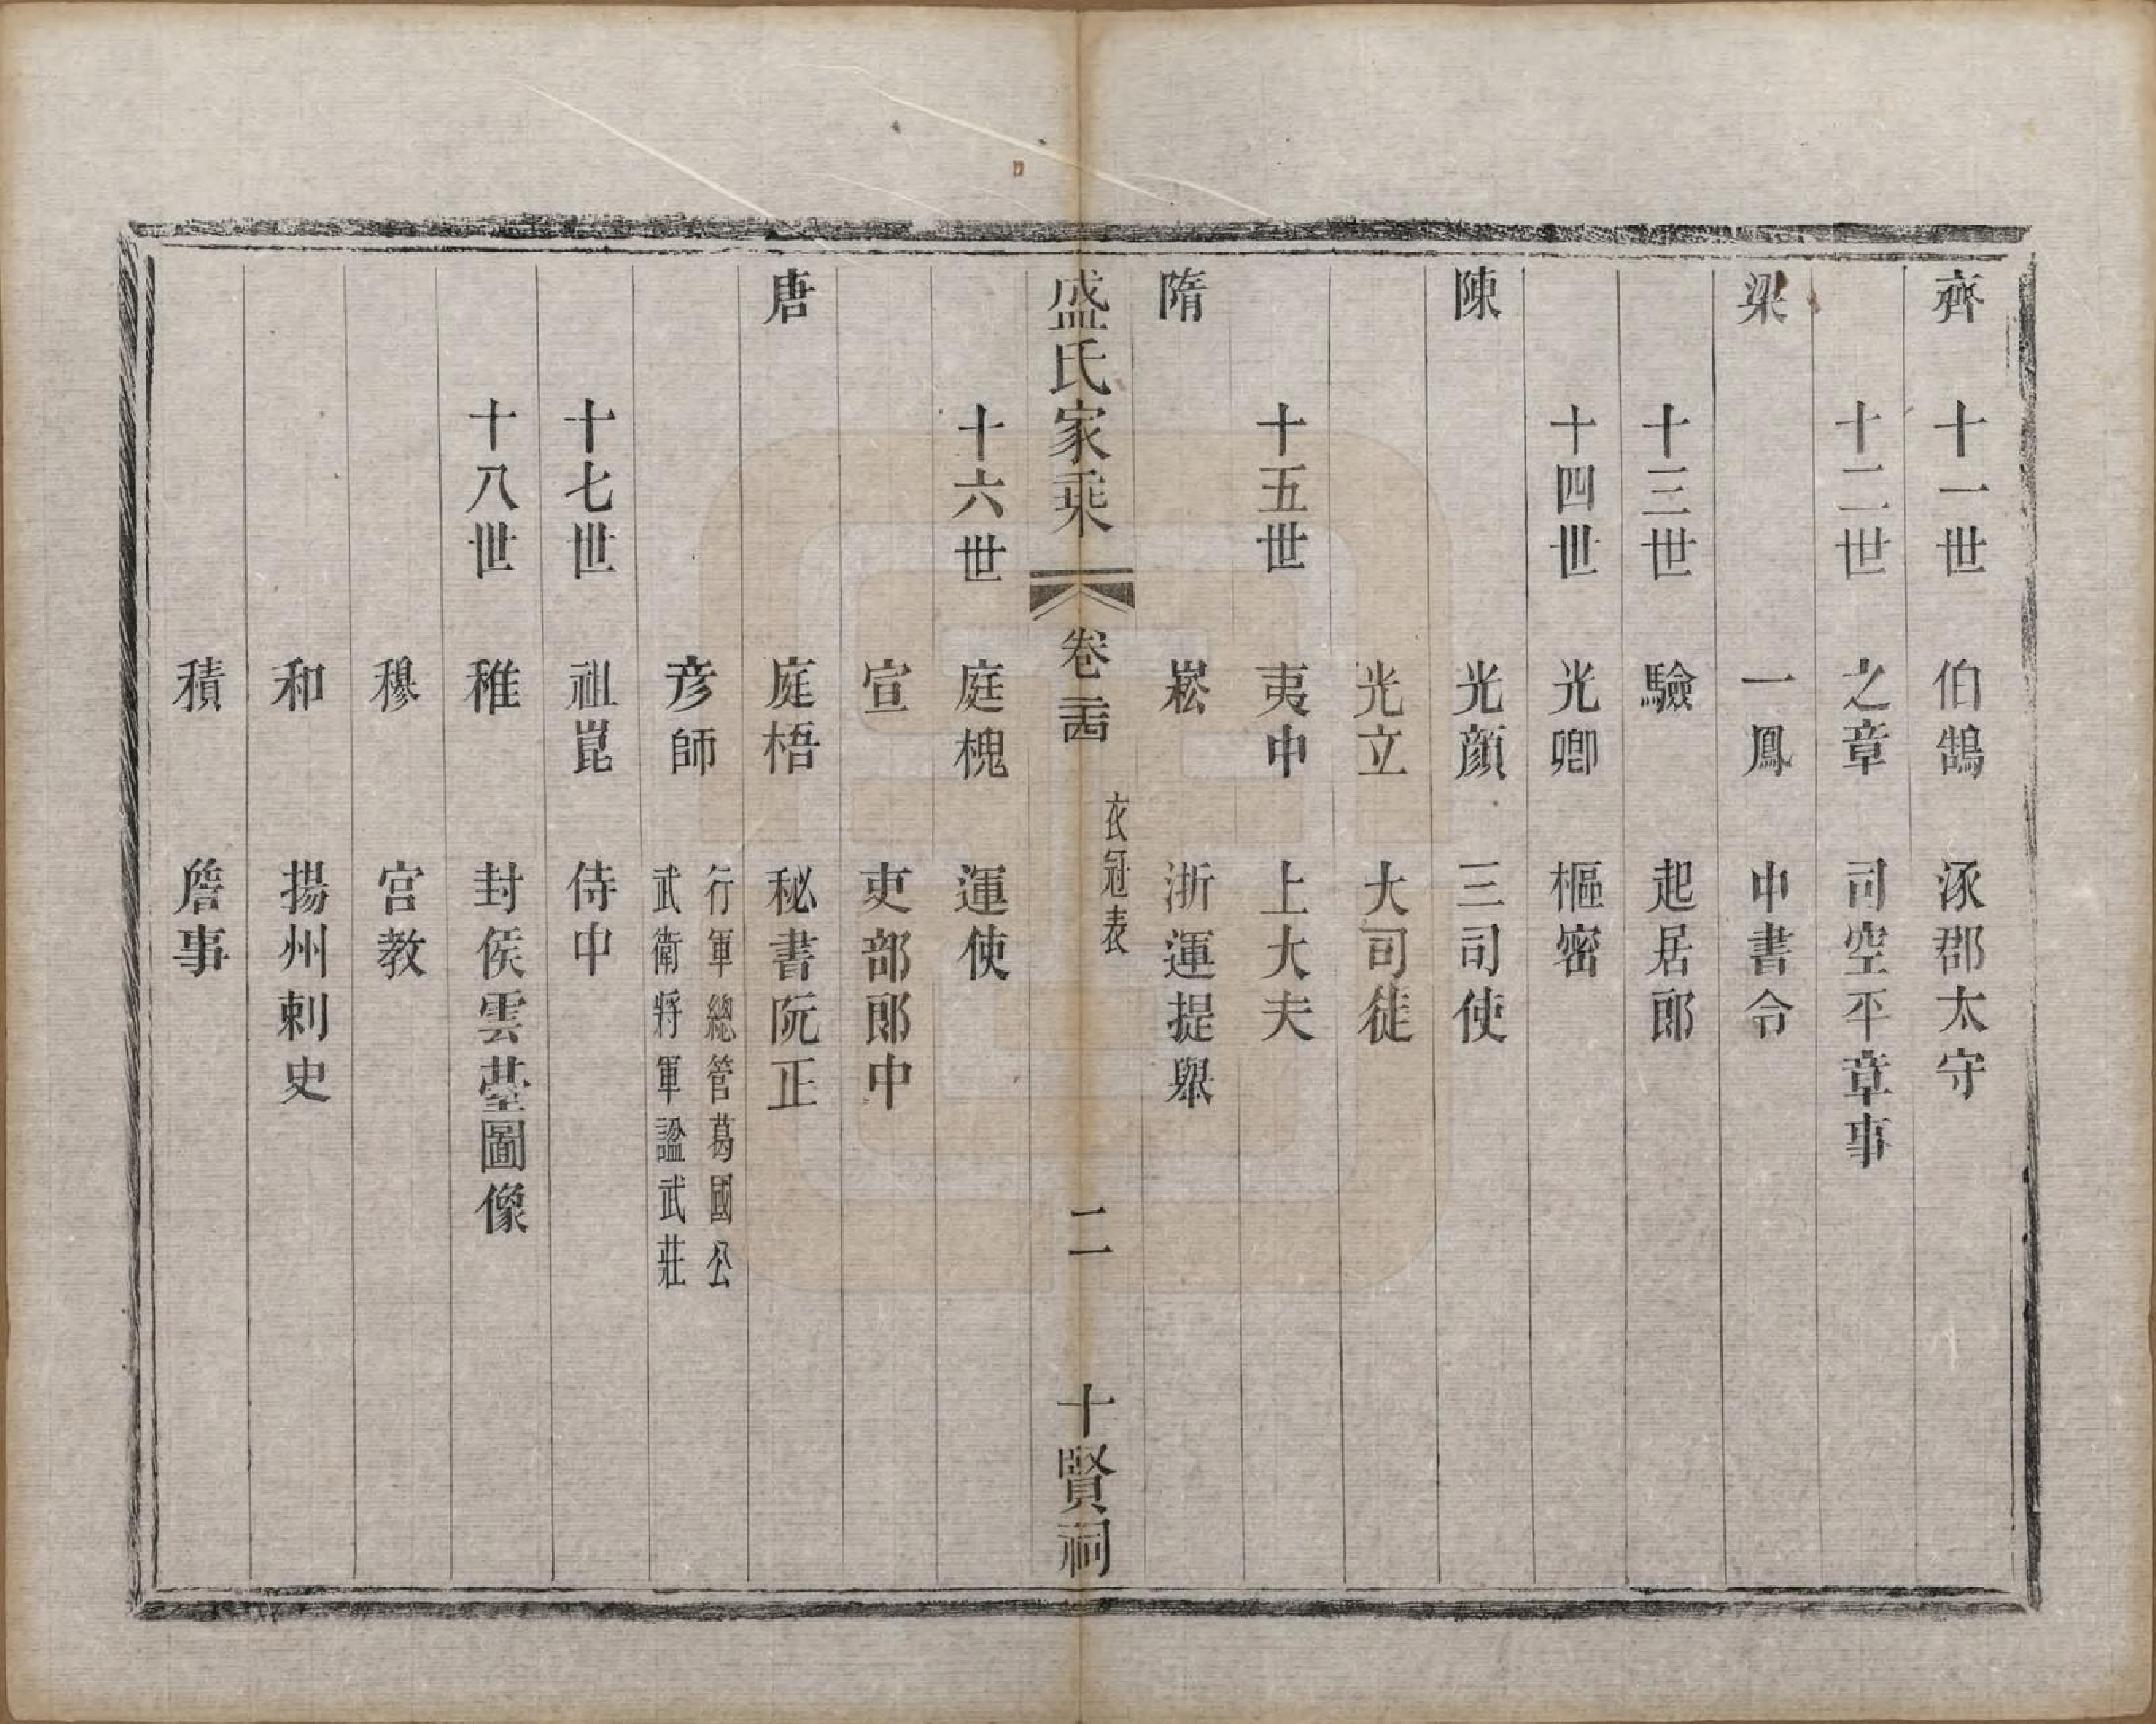 齊 十一世 伯鵠 涿郡太守
十二世 之章 司空平章事
梁 一鳳 中書令
十三世 驗 起居郎
十四世 光卿 樞密
陳 光顔 三司使
光立 大司徒
十五世 夷中 上大夫
隋 崧 浙運提舉
盛氏家乘 卷二十四 衣冠表 二 十賢祠
十六世 庭槐 運使
宣 吏部郎中
唐 庭梧 秘書阮正
彦師 行軍總管葛國公
武衛將軍諡武莊
十七世 祖崑 侍中
十八世 稚 封侯雲臺圖像
穆 宫教
和 揚州刺史
積 詹事